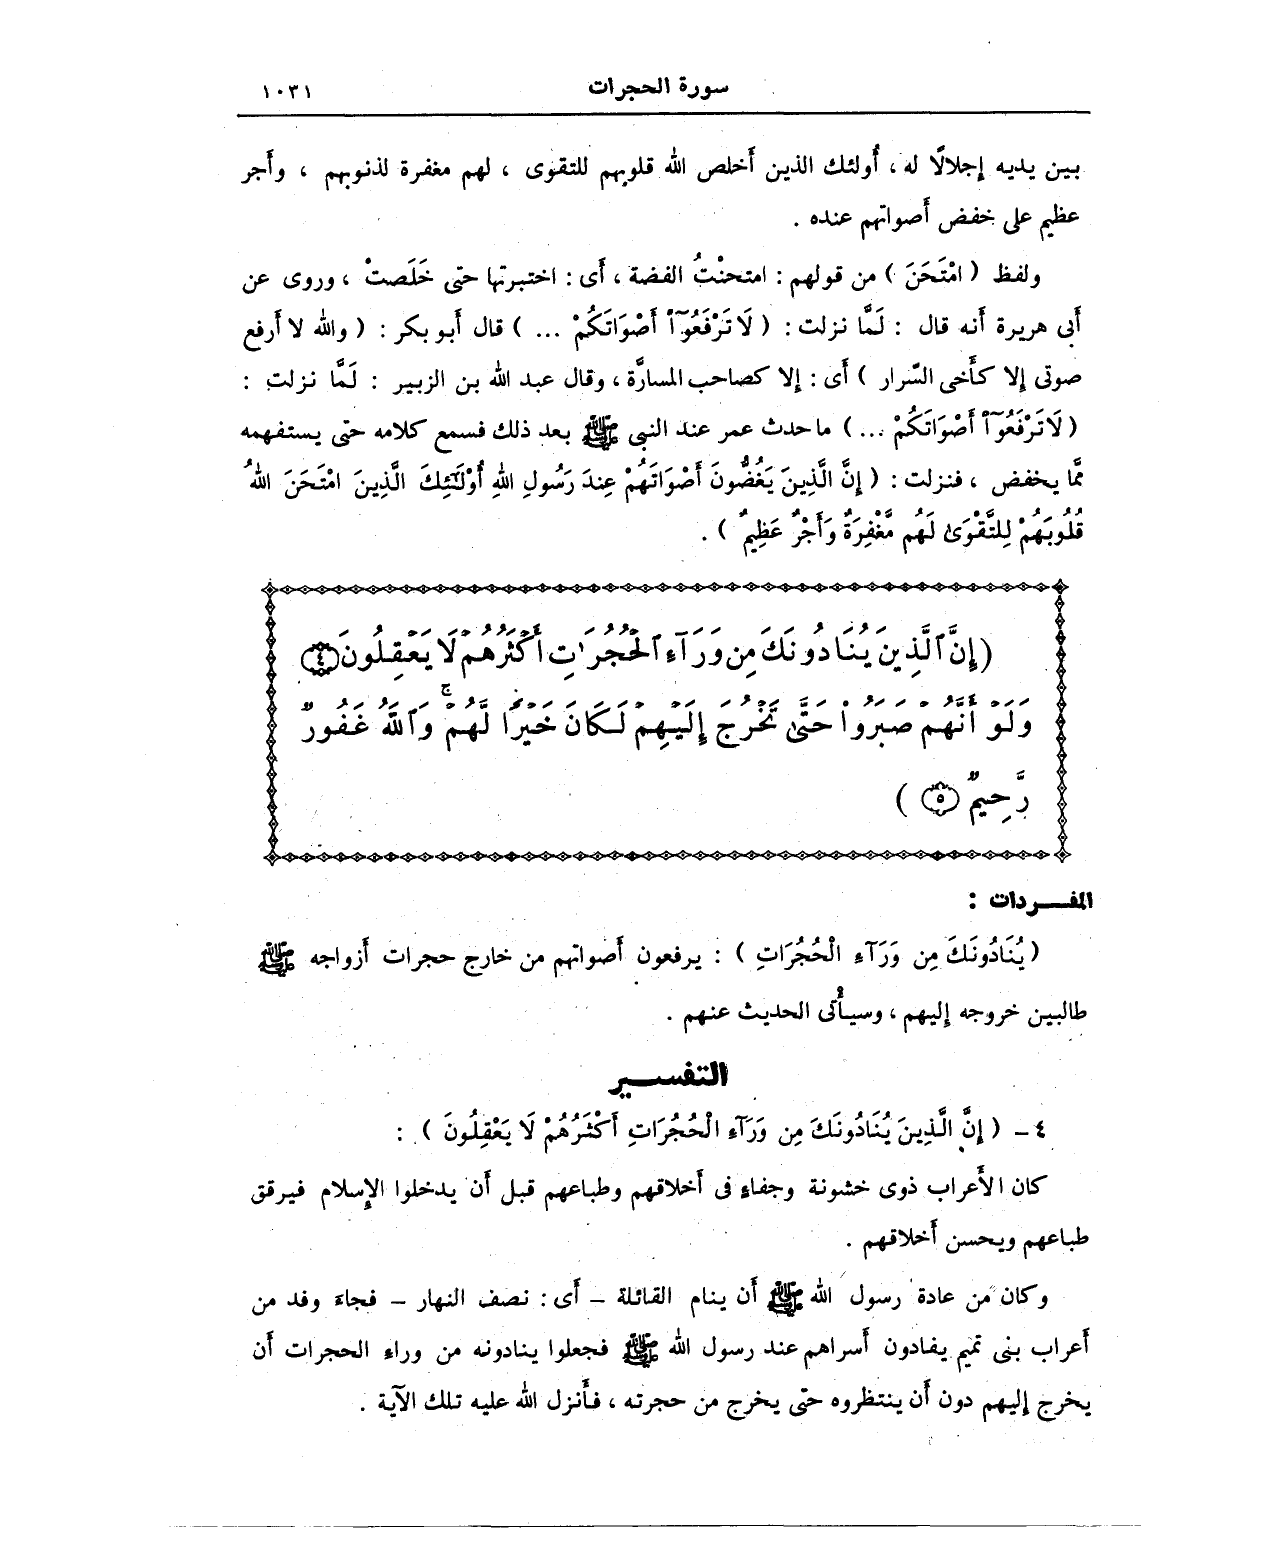 سورة الحجرات ١٠٣١
بين يديه إجلالًا له ، أُولئك الذين أَخلص الله قلوبهم للتقوى ، لهم مغفرة لذنوبهم ، وأَجر
عظيم على خفض أَصواتهم عنده .
ولفظ ( امْتَحَنَ ) من قولهم : امتحنْتُ الفضة ، أَى : اختبرتها حتى خَلَصتْ ، وروى عن
أَبى هريرة أَنه قال : لَمَّا نزلت : ( لَا تَرْفَعُوٓاْ أَصْوَاتَكُمْ ... ) قال أَبو بكر : ( والله لا أَرفع
صوتى إلا كأَخى السِّرار ) أَى : إلا كصاحب المسارَّة ، وقال عبد الله بن الزبير : لَمَّا نزلت :
( لَا تَرْفَعُوٓاْ أَصْوَاتَكُمْ ... ) ما حدث عمر عند النبى ﷺ بعد ذلك فسمع كلامه حتى يستفهمه
مَّما يخفض ، فنزلت : ( إِنَّ الَّذِينَ يَغُضُّونَ أَصْوَاتَهُمْ عِندَ رَسُولِ اللهِ أُوْلَٰٓئِكَ الَّذِينَ امْتَحَنَ اللهُ
قُلُوبَهُمْ لِلتَّقْوَىٰ لَهُم مَّغْفِرَةٌ وَأَجْرٌ عَظِيمٌ ) .
( إِنَّ ٱلَّذِينَ يُنَادُونَكَ مِن وَرَآءِ ٱلْحُجُرَٰتِ أَكْثَرُهُمْ لَا يَعْقِلُونَ ۝٤
وَلَوْ أَنَّهُمْ صَبَرُواْ حَتَّىٰ تَخْرُجَ إِلَيْهِمْ لَكَانَ خَيْرًا لَّهُمْ ۚ وَٱللَّهُ غَفُورٌ
رَّحِيمٌ ۝٥ )
المفـــردات :
( يُنَادُونَكَ مِن وَرَآءِ الْحُجُرَاتِ ) : يرفعون أَصواتهم من خارج حجرات أَزواجه ﷺ
طالبين خروجه إليهم ، وسيأْتى الحديث عنهم .
التفســـير
٤ - ( إِنَّ الَّذِينَ يُنَادُونَكَ مِن وَرَآءِ الْحُجُرَاتِ أَكْثَرُهُمْ لَا يَعْقِلُونَ ) :
كان الأَعراب ذوى خشونة وجفاءٍ فى أَخلاقهم وطباعهم قبل أَن يدخلوا الإِسلام فيرقق
طباعهم ويحسن أَخلاقهم .
وكان من عادة رسول الله ﷺ أَن ينام القائلة - أَى : نصف النهار - فجاءَ وفد من
أَعراب بنى تميم يفادون أَسراهم عند رسول الله ﷺ فجعلوا ينادونه من وراءِ الحجرات أَن
يخرج إليهم دون أَن ينتظروه حتَّى يخرج من حجرته ، فأَنزل الله عليه تلك الآية .